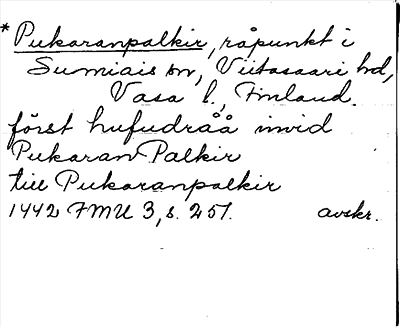 *Pukaranpalkir, råpunkt i
Sumiais sn, Viitasaari hd,
Vasa l., Finland.
först hufudråå invid
Pukaran Palkir
till Pukaranpalkir
1442 FMU 3, s. 251. avskr.